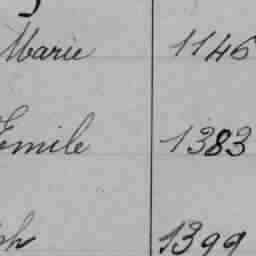 Marie 1146
Emile 1383
ph 1399